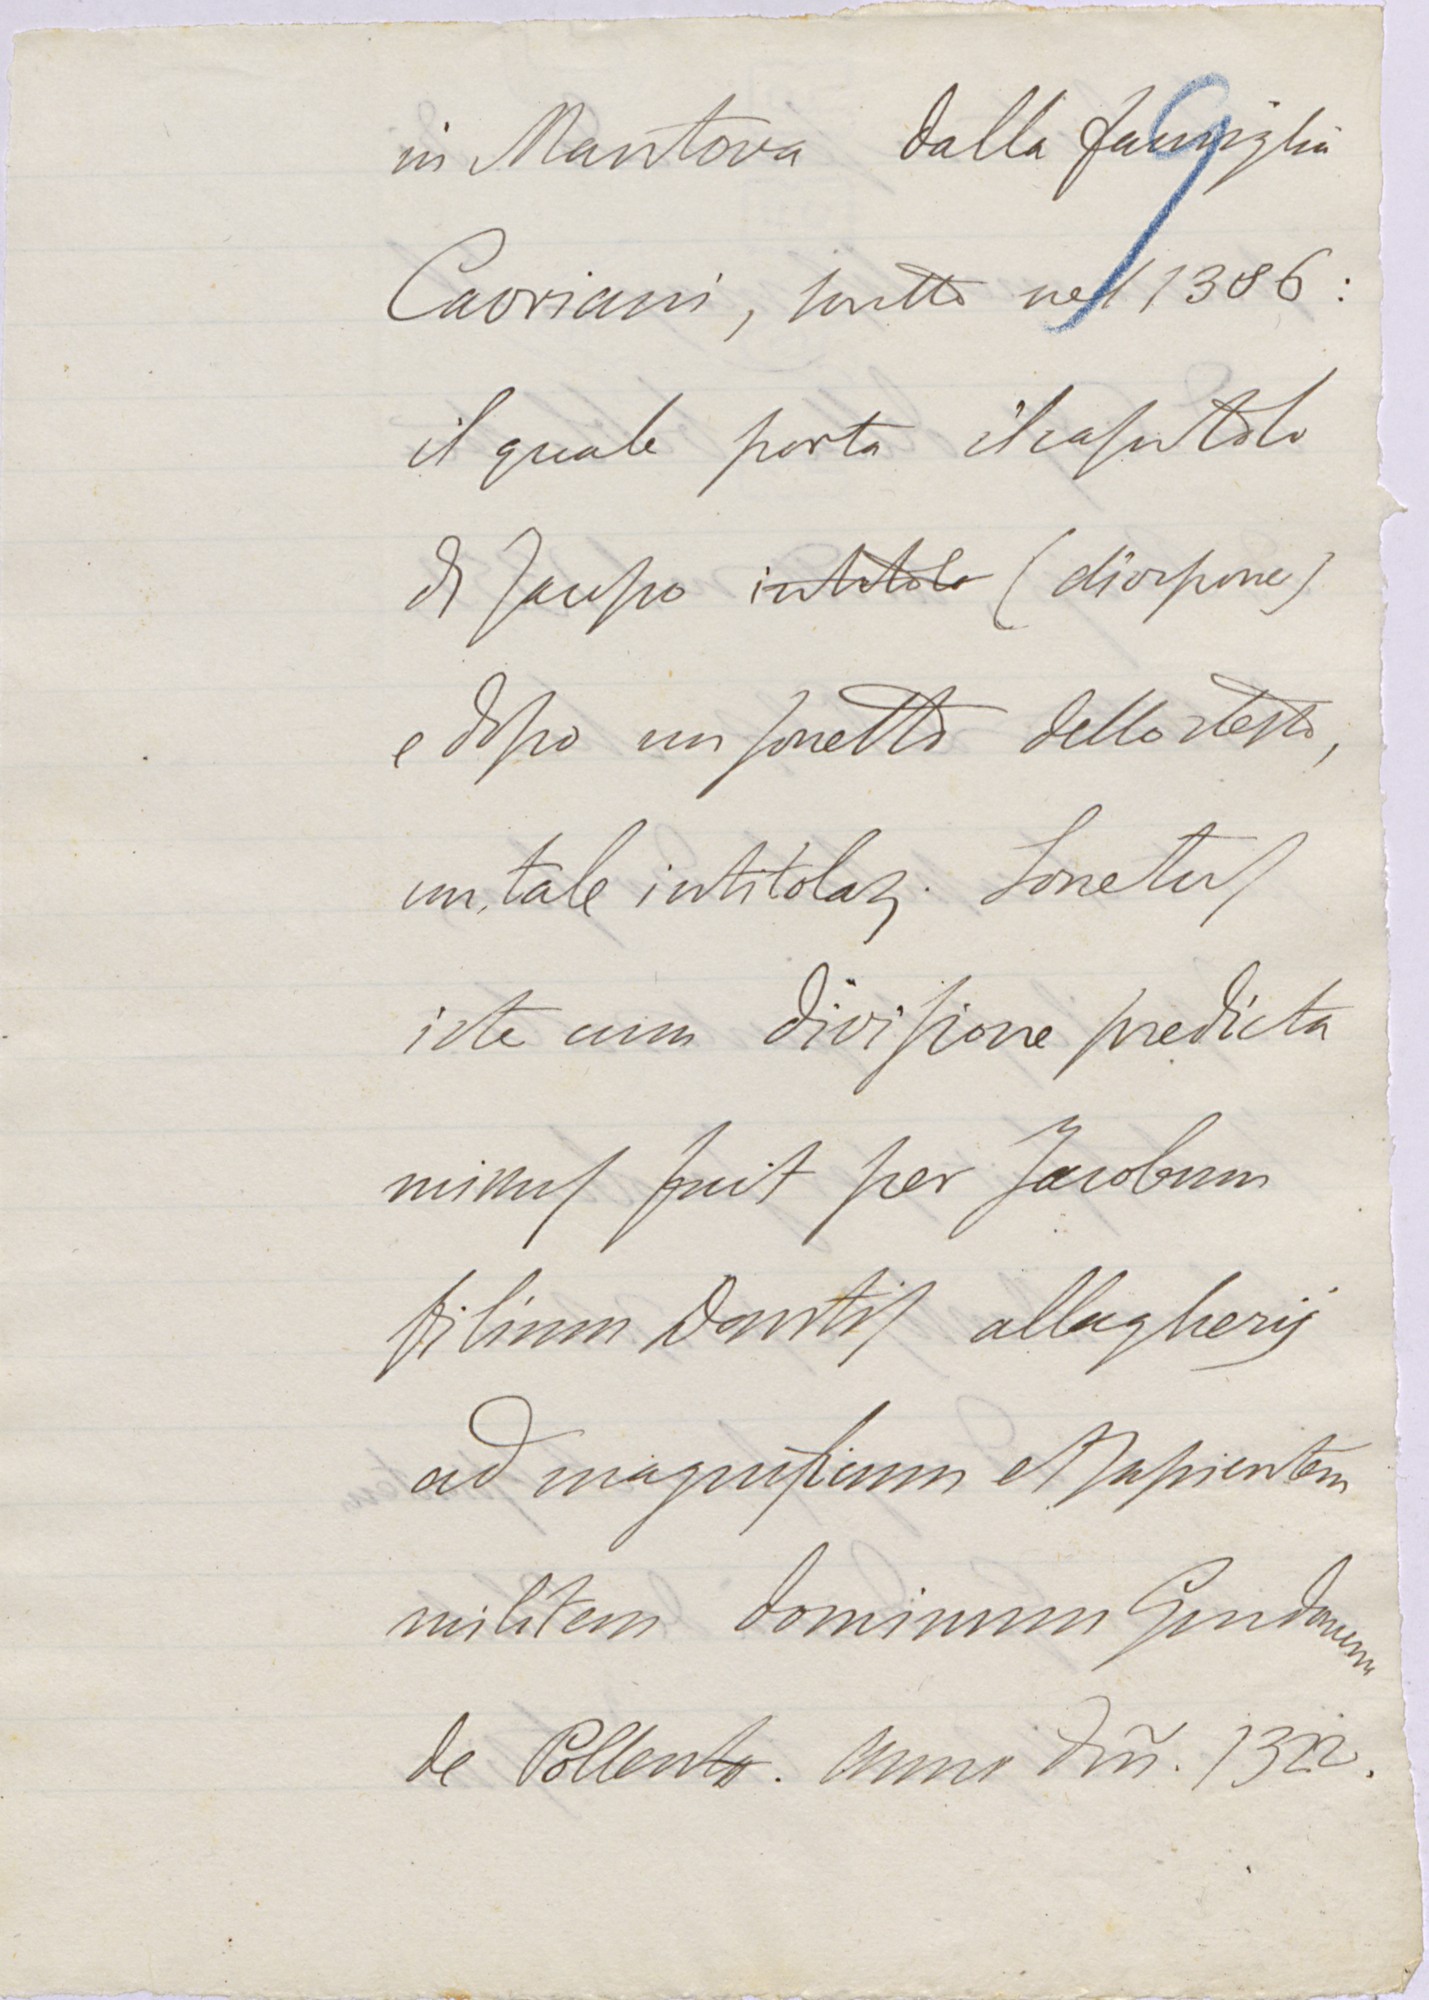 9
in Mantova dalla famiglia
Cavriani, scritto nell 1386:
il quale porta il capitolo
di Jacopo intitolo (divisione)
e dopo un sonetto dello stesso,
un, tale intitolaz. Sonetus
iste cum divisione predicta
missus fuit per Jacobum
filium Dantis allagherij
ad magnificum et sapientem
militem dominum Guidonem
de Pollento. Anno Dñi. 1322.